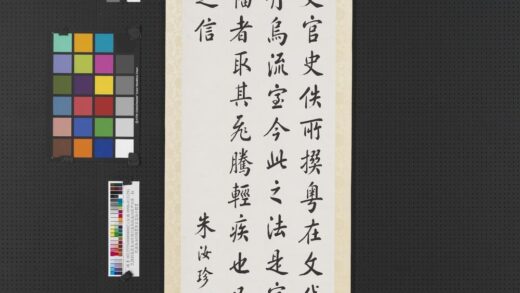 官史佚所撰粤在文代
烏流室今此之法是
幡者取其飛騰輕疾也
之信
朱汝珍